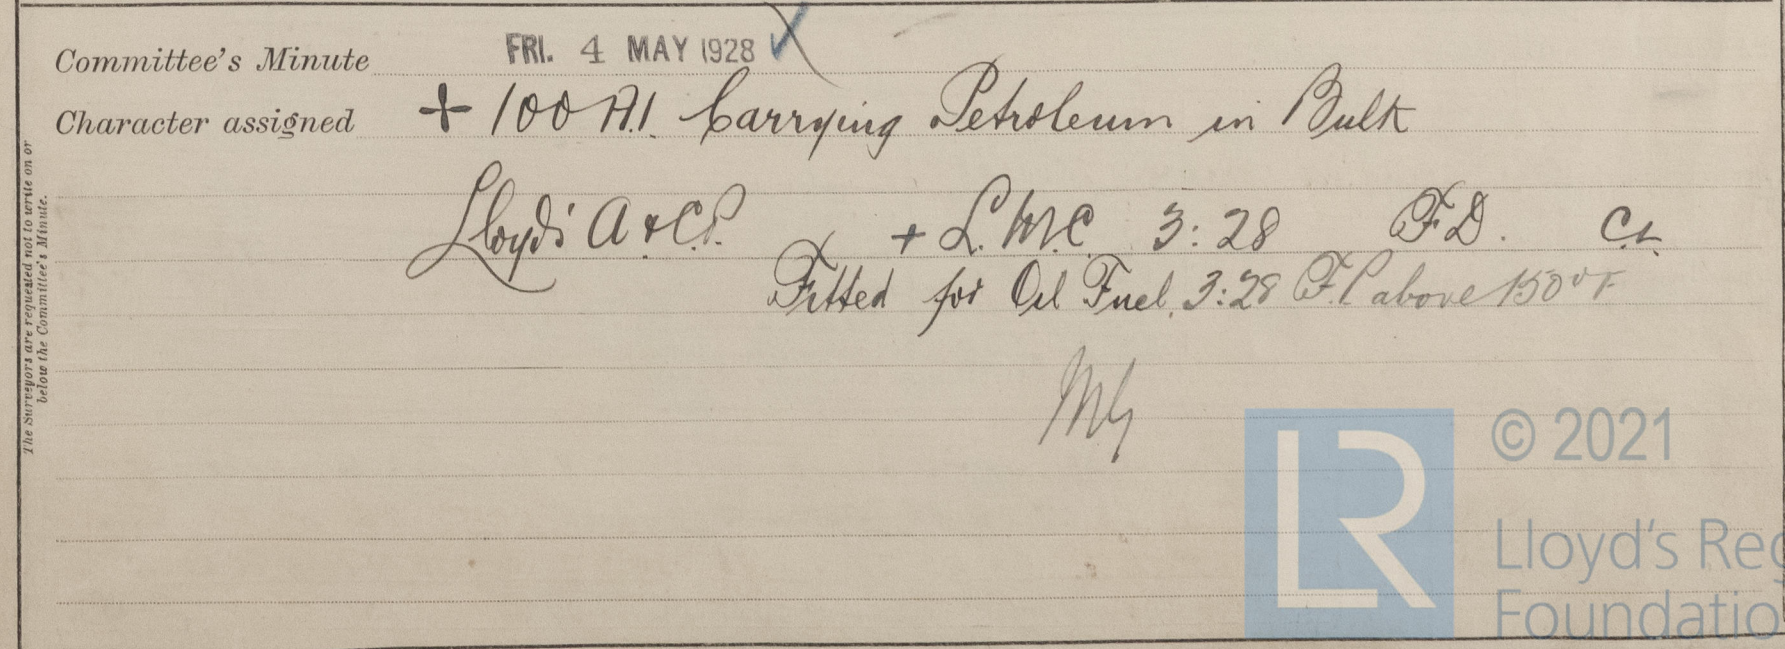 Committee's Minute FRI. 4 MAY 1928
Character assigned + 100 A.1. Carrying Petroleum in Bulk
Lloyd's A & C.P. + L.M.C. 3:28 F.D. C.L.
Fitted for Oil Fuel. 3:28 F.P. above 150° F
The Surveyors are requested not to write on or
below the Committee's Minute.
LR
© 2021
Lloyd's Reg
Foundatio